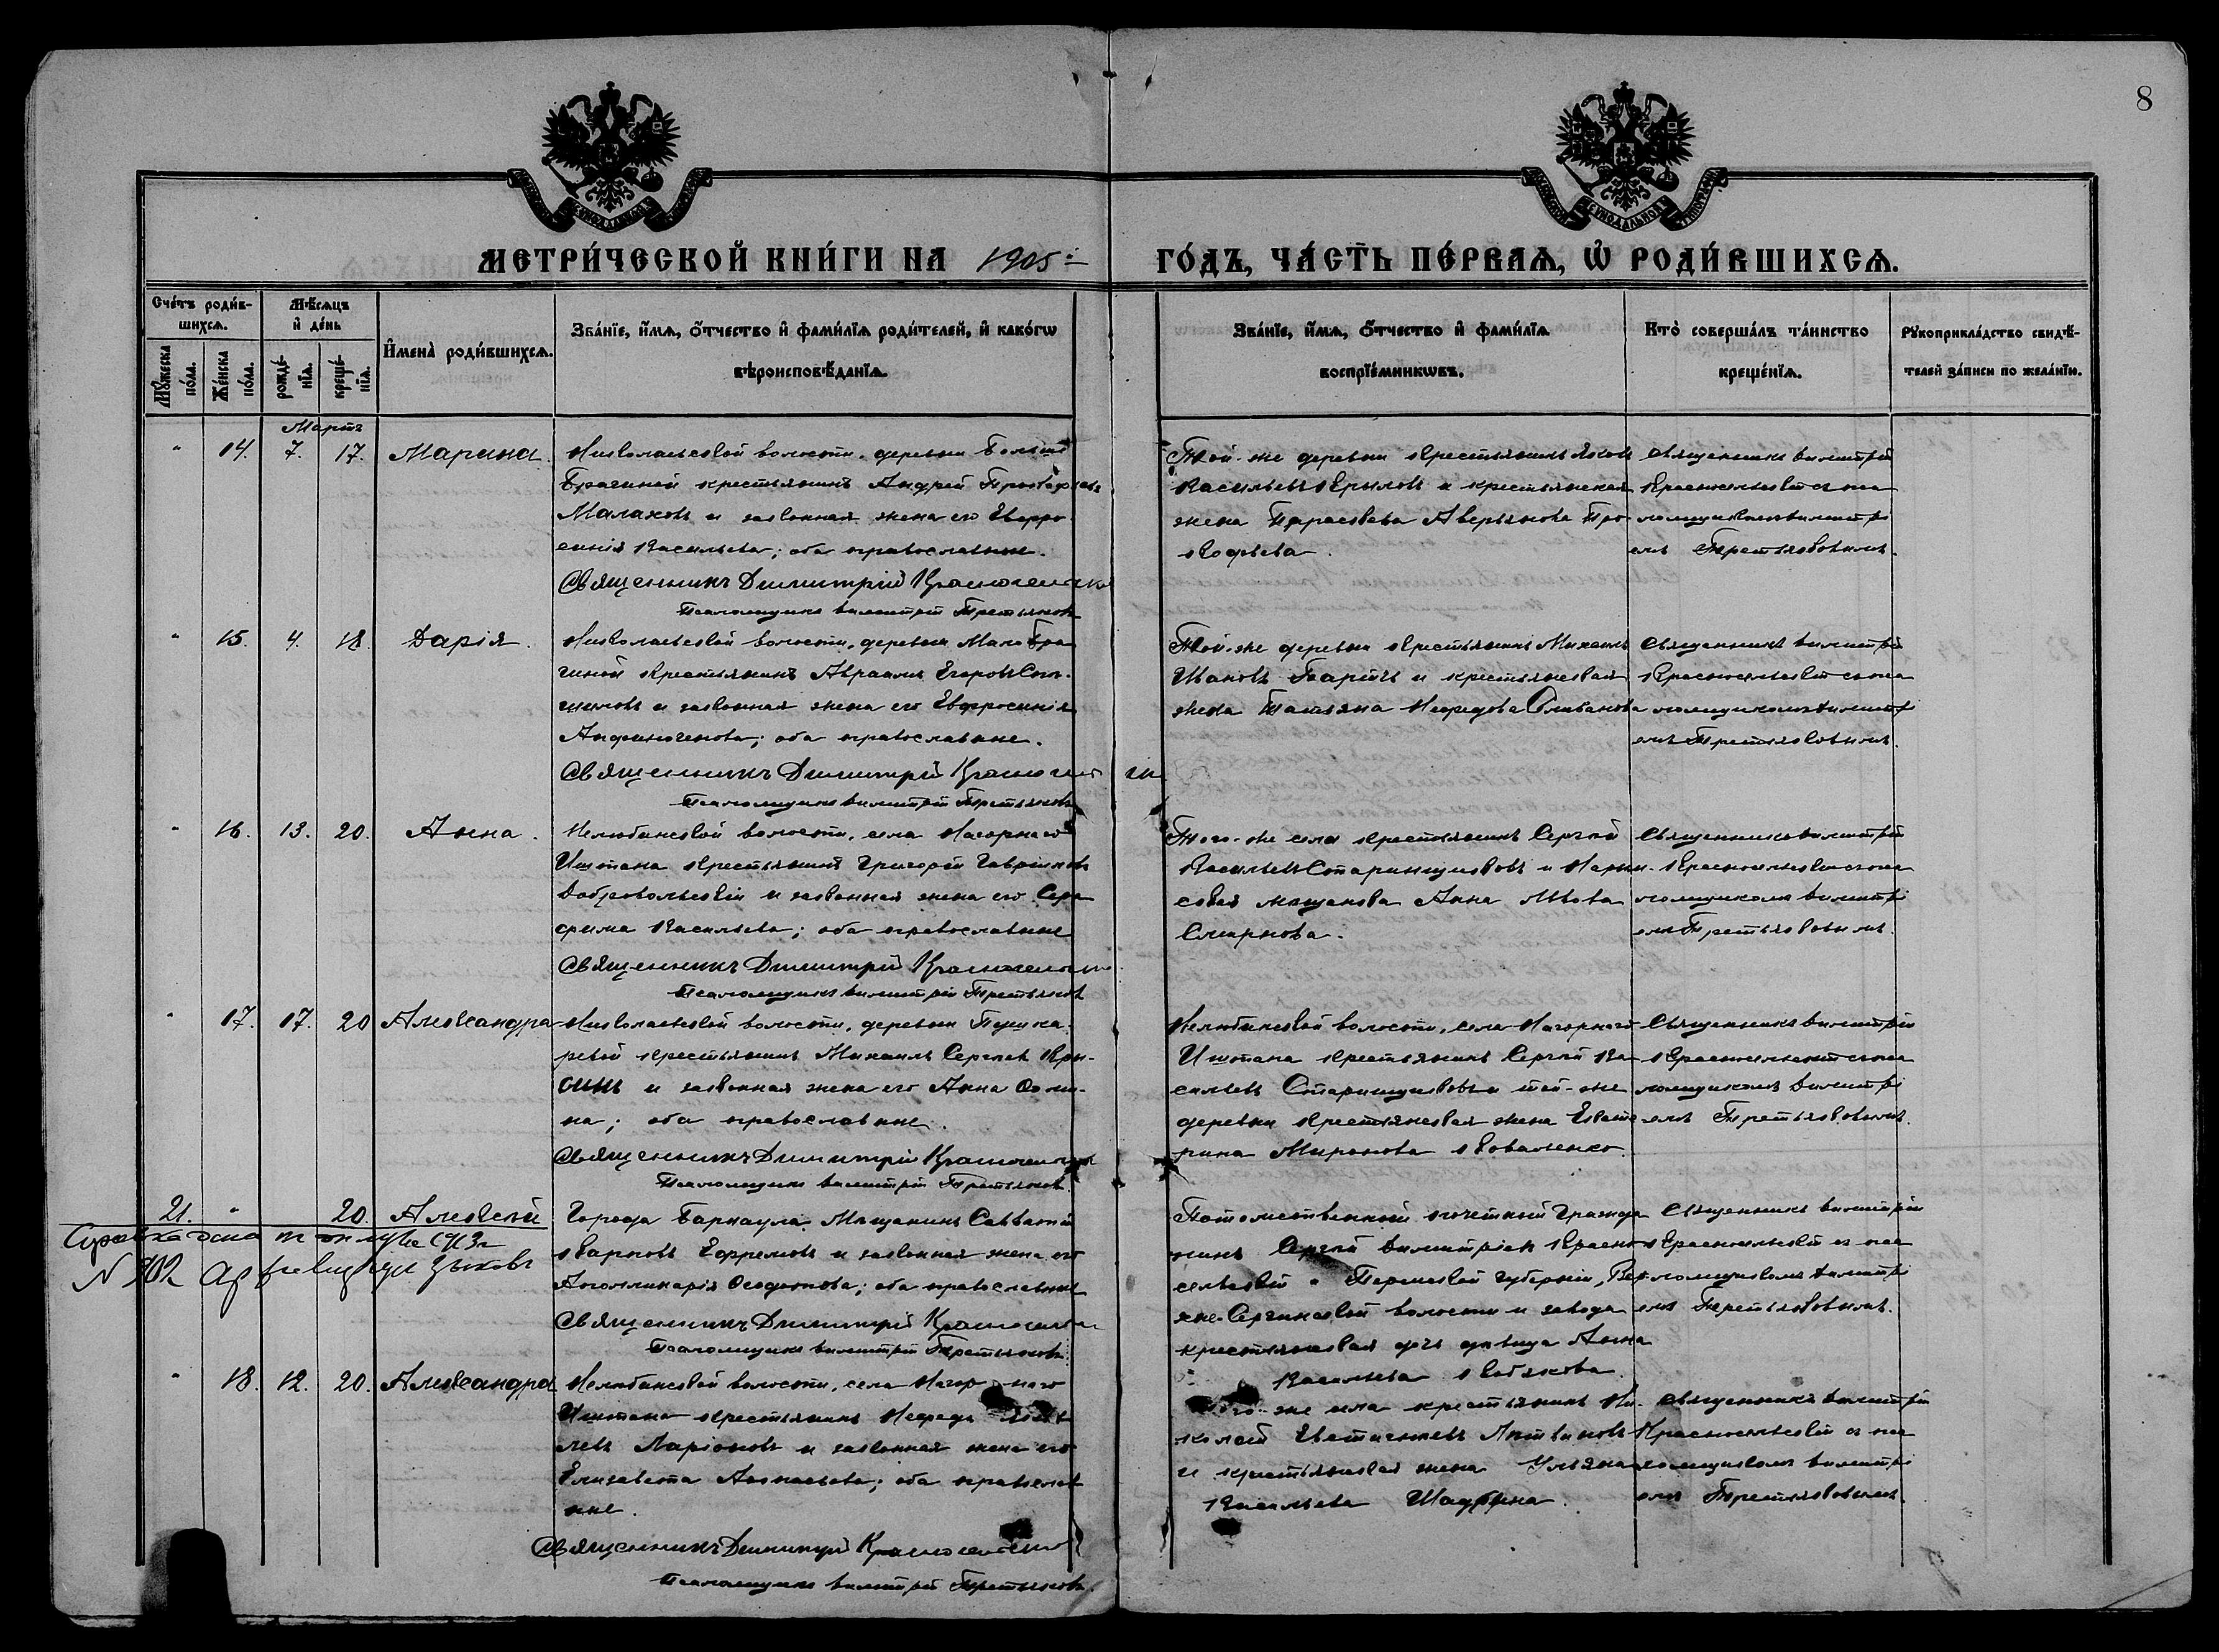 8
МЕТРИ́ЧЕСКОЙ КНИ́ГИ НА 1905 ГО́ДЪ, ЧА́СТЬ ПЕ́РВАѦ, Ѡ҆ РОДИ́ВШИХСѦ.
Сче́тъ роди́в-
шихсѧ.
Мѣ́сѧцъ
и҆ де́нь
Мꙋ́жеска по́ла.
Же́нска по́ла.
рожде́-
нїѧ.
креще́-
нїѧ.
И҆мена̀ роди́вшихсѧ.
Зва́нїе, и҆́мѧ, ѻ҆́тчество и҆ фами́лїѧ роди́телей, и҆ како́гѡ
вѣроисповѣ́данїѧ.
Зва́нїе, и҆́мѧ, ѻ҆́тчество и҆ фами́лїѧ
воспрїе́мникѡвъ.
Кто̀ соверша́лъ та́инство
креще́нїѧ.
Рꙋкоприкла́дство свидѣ́-
телей за́писи по жела́нїю.
Мартъ
" 14. 7. 17. Марина.
Николаевской волости, деревни Больше
Брагиной крестьянинъ Андрей Прокофьевъ
Малаховъ и законная жена его Евфро-
синія Васильева; оба православные.
Священникъ Димитрій Красносельскій
Псаломщикъ Димитрій Третьяковъ
Той-же деревни крестьянинъ Яковъ
Васильевъ Крыловъ и крестьянская
жена Параскева Аверьянова Про-
кофьева.
Священникъ Димитрій
Красносельскій съ пса
ломщикомъ Димитрі
емъ Третьяковымъ.
" 15. 4. 18. Дарія.
Николаевской волости, деревни Мало Бра
гиной крестьянинъ Авраамъ Егоровъ
и законная жена его Евфросинія
оба православные.
Священникъ Димитрій Красносельскій
Псаломщикъ Димитрій Третьяковъ
Той-же деревни крестьянинъ Михаилъ
Ивановъ и крестьянская
жена Татьяна Селиванова
Священникъ Димитрій
Красносельскій съ пса
ломщикомъ Димитрі
емъ Третьяковымъ.
" 16. 13. 20. Анна.
Нелюбинской волости, села Нагорнаго
Иштана крестьянинъ Григорій Гавриловъ
Добровольскій и законная жена его Сера
фима Васильева; оба православные
Священникъ Димитрій Красносельскій
Псаломщикъ Димитрій Третьяковъ
Того-же села крестьянинъ Сергѣй
Васильевъ Старинщиковъ и Нарым-
ская мѣщанка Анна Львова
Смирнова.
Священникъ Димитрій
Красносельскій съ пса
ломщикомъ Димитрі
емъ Третьяковымъ.
" 17. 17. 20 Александра
Николаевской волости, деревни Пушка-
ревой крестьянинъ Михаилъ Сергѣевъ
и законная жена его Анна Ѳоми-
на; оба православные.
Священникъ Димитрій Красносельскій
Псаломщикъ Димитрій Третьяковъ.
Нелюбинской волости, села Нагорнаго
Иштана крестьянинъ Сергѣй Ва-
сильевъ Старинщиковъ и той-же
деревни крестьянская жена Екате
рина Миронова Коваленко.
Священникъ Димитрій
Красносельскій съ пса
ломщикомъ Димитрі
емъ Третьяковымъ.
21. " 20. Алексѣй
Справка дана
N 302
Города Барнаула мѣщанинъ Савватій
Карповъ Ефремовъ и законная жена его
Аполлинарія Ѳеофанова; оба православные
Священникъ Димитрій Красносельскій
Псаломщикъ Димитрій Третьяковъ.
Потомственный почетный гражда
нинъ Сергѣй Димитріевъ Красно
сельскій и Пермской губерніи, Ни-
же-Сергинской волости и завода
крестьянская дочь дѣвица Анна
Васильева
Священникъ Димитрій
Красносельскій съ пса
ломщикомъ Димитрі
емъ Третьяковымъ.
" 18. 12. 20. Александра
Нелюбинской волости, села Нагорнаго
Иштана крестьянинъ
Ларіоновъ и законная жена его
Елизавета Аѳанасьева; оба православ
ные.
Священникъ Димитрій Красносельскій
Псаломщикъ Димитрій Третьяковъ.
Того-же села крестьянинъ Ни-
колай Евстигнѣевъ Литвиновъ
и крестьянская жена Ульяна
Васильева Шадрина.
Священникъ Димитрій
Красносельскій съ пса
ломщикомъ Димитрі
емъ Третьяковымъ.